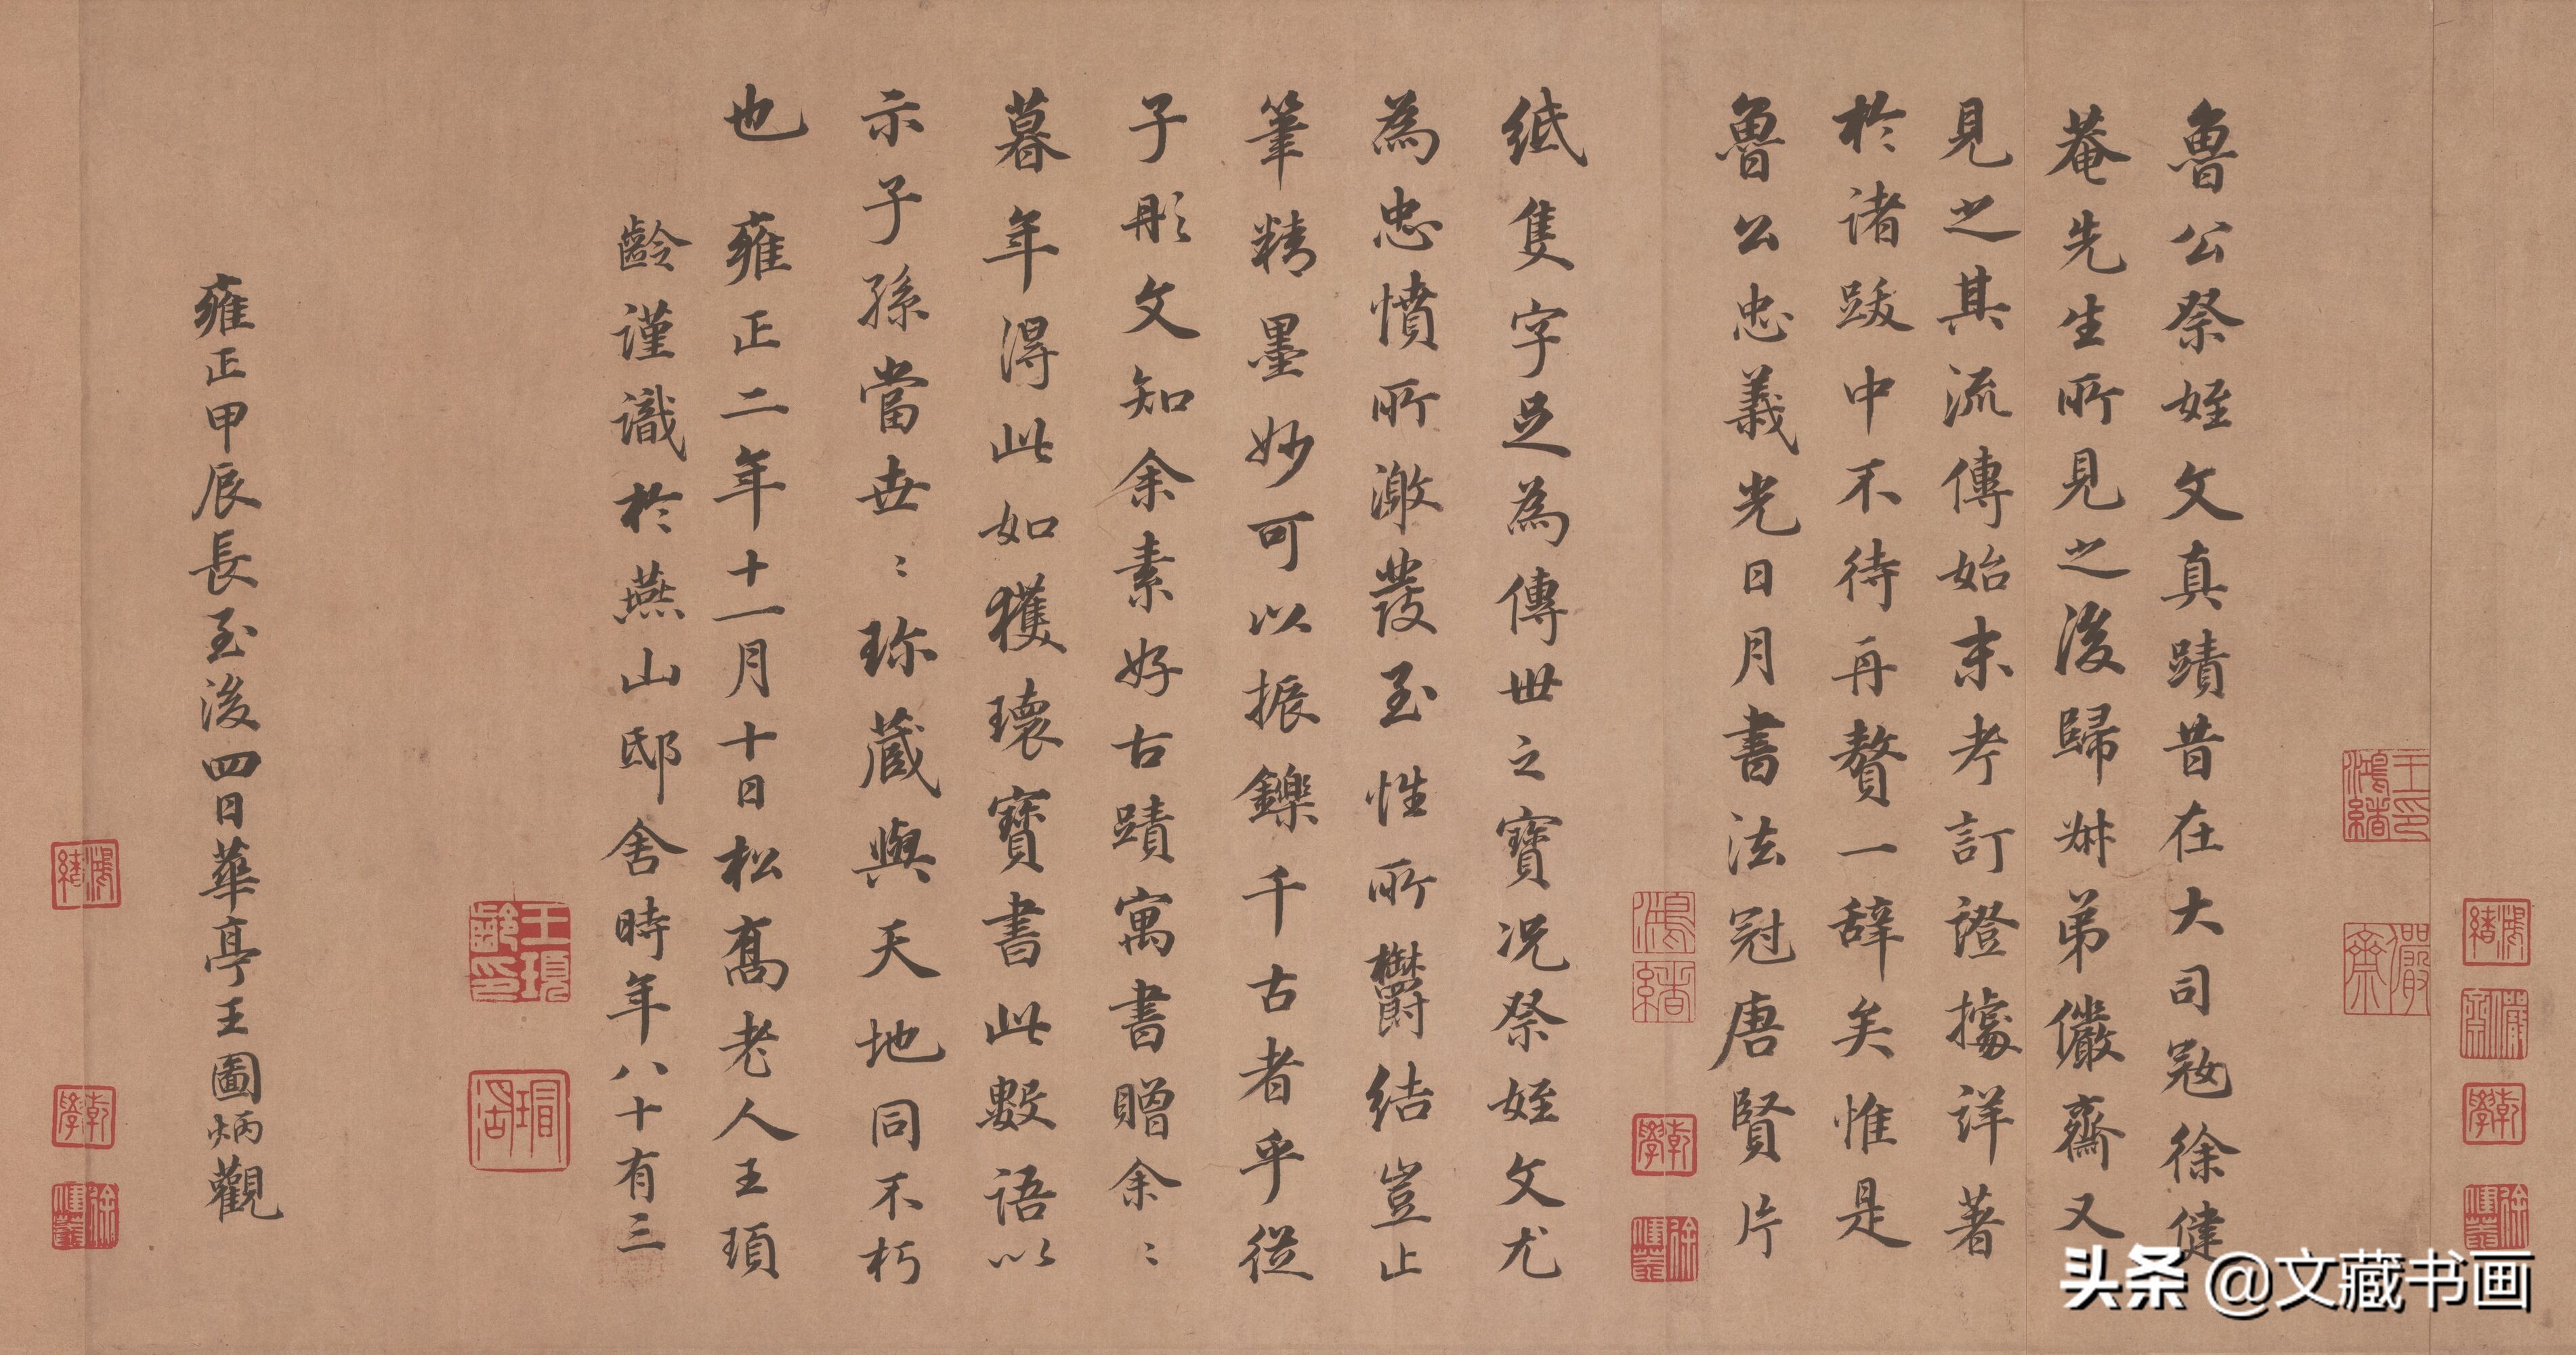 魯公祭姪文真蹟昔在大司寇徐健
菴先生所見之後歸姝弟儼齋又
見之其流傳始末考訂證據詳著
於諸跋中不待再贅一辭矣惟是
魯公忠義光日月書法冠唐賢片
紙隻字足為傳世之寶況祭姪文尤
為忠憤所激發至性所鬱結豈止
筆精墨妙可以振鑠千古者乎從
子彤文知余素好古蹟寓書贈余〻
暮年得此如獲瓌寶書此數語以
示子孫當世〻珍藏與天地同不朽
也 雍正二年十一月十日松喬老人王頊
齡謹識於燕山邸舍時年八十有三
王頊齡印
瑁湖
雍正甲辰長至後四日華亭王圖炳觀
王鴻緒印
儼齋
鴻緒
儼齋
乾學
徐健菴
鴻緒
乾學
徐健菴
鴻緒
乾學
徐健菴
头条 @文藏书画